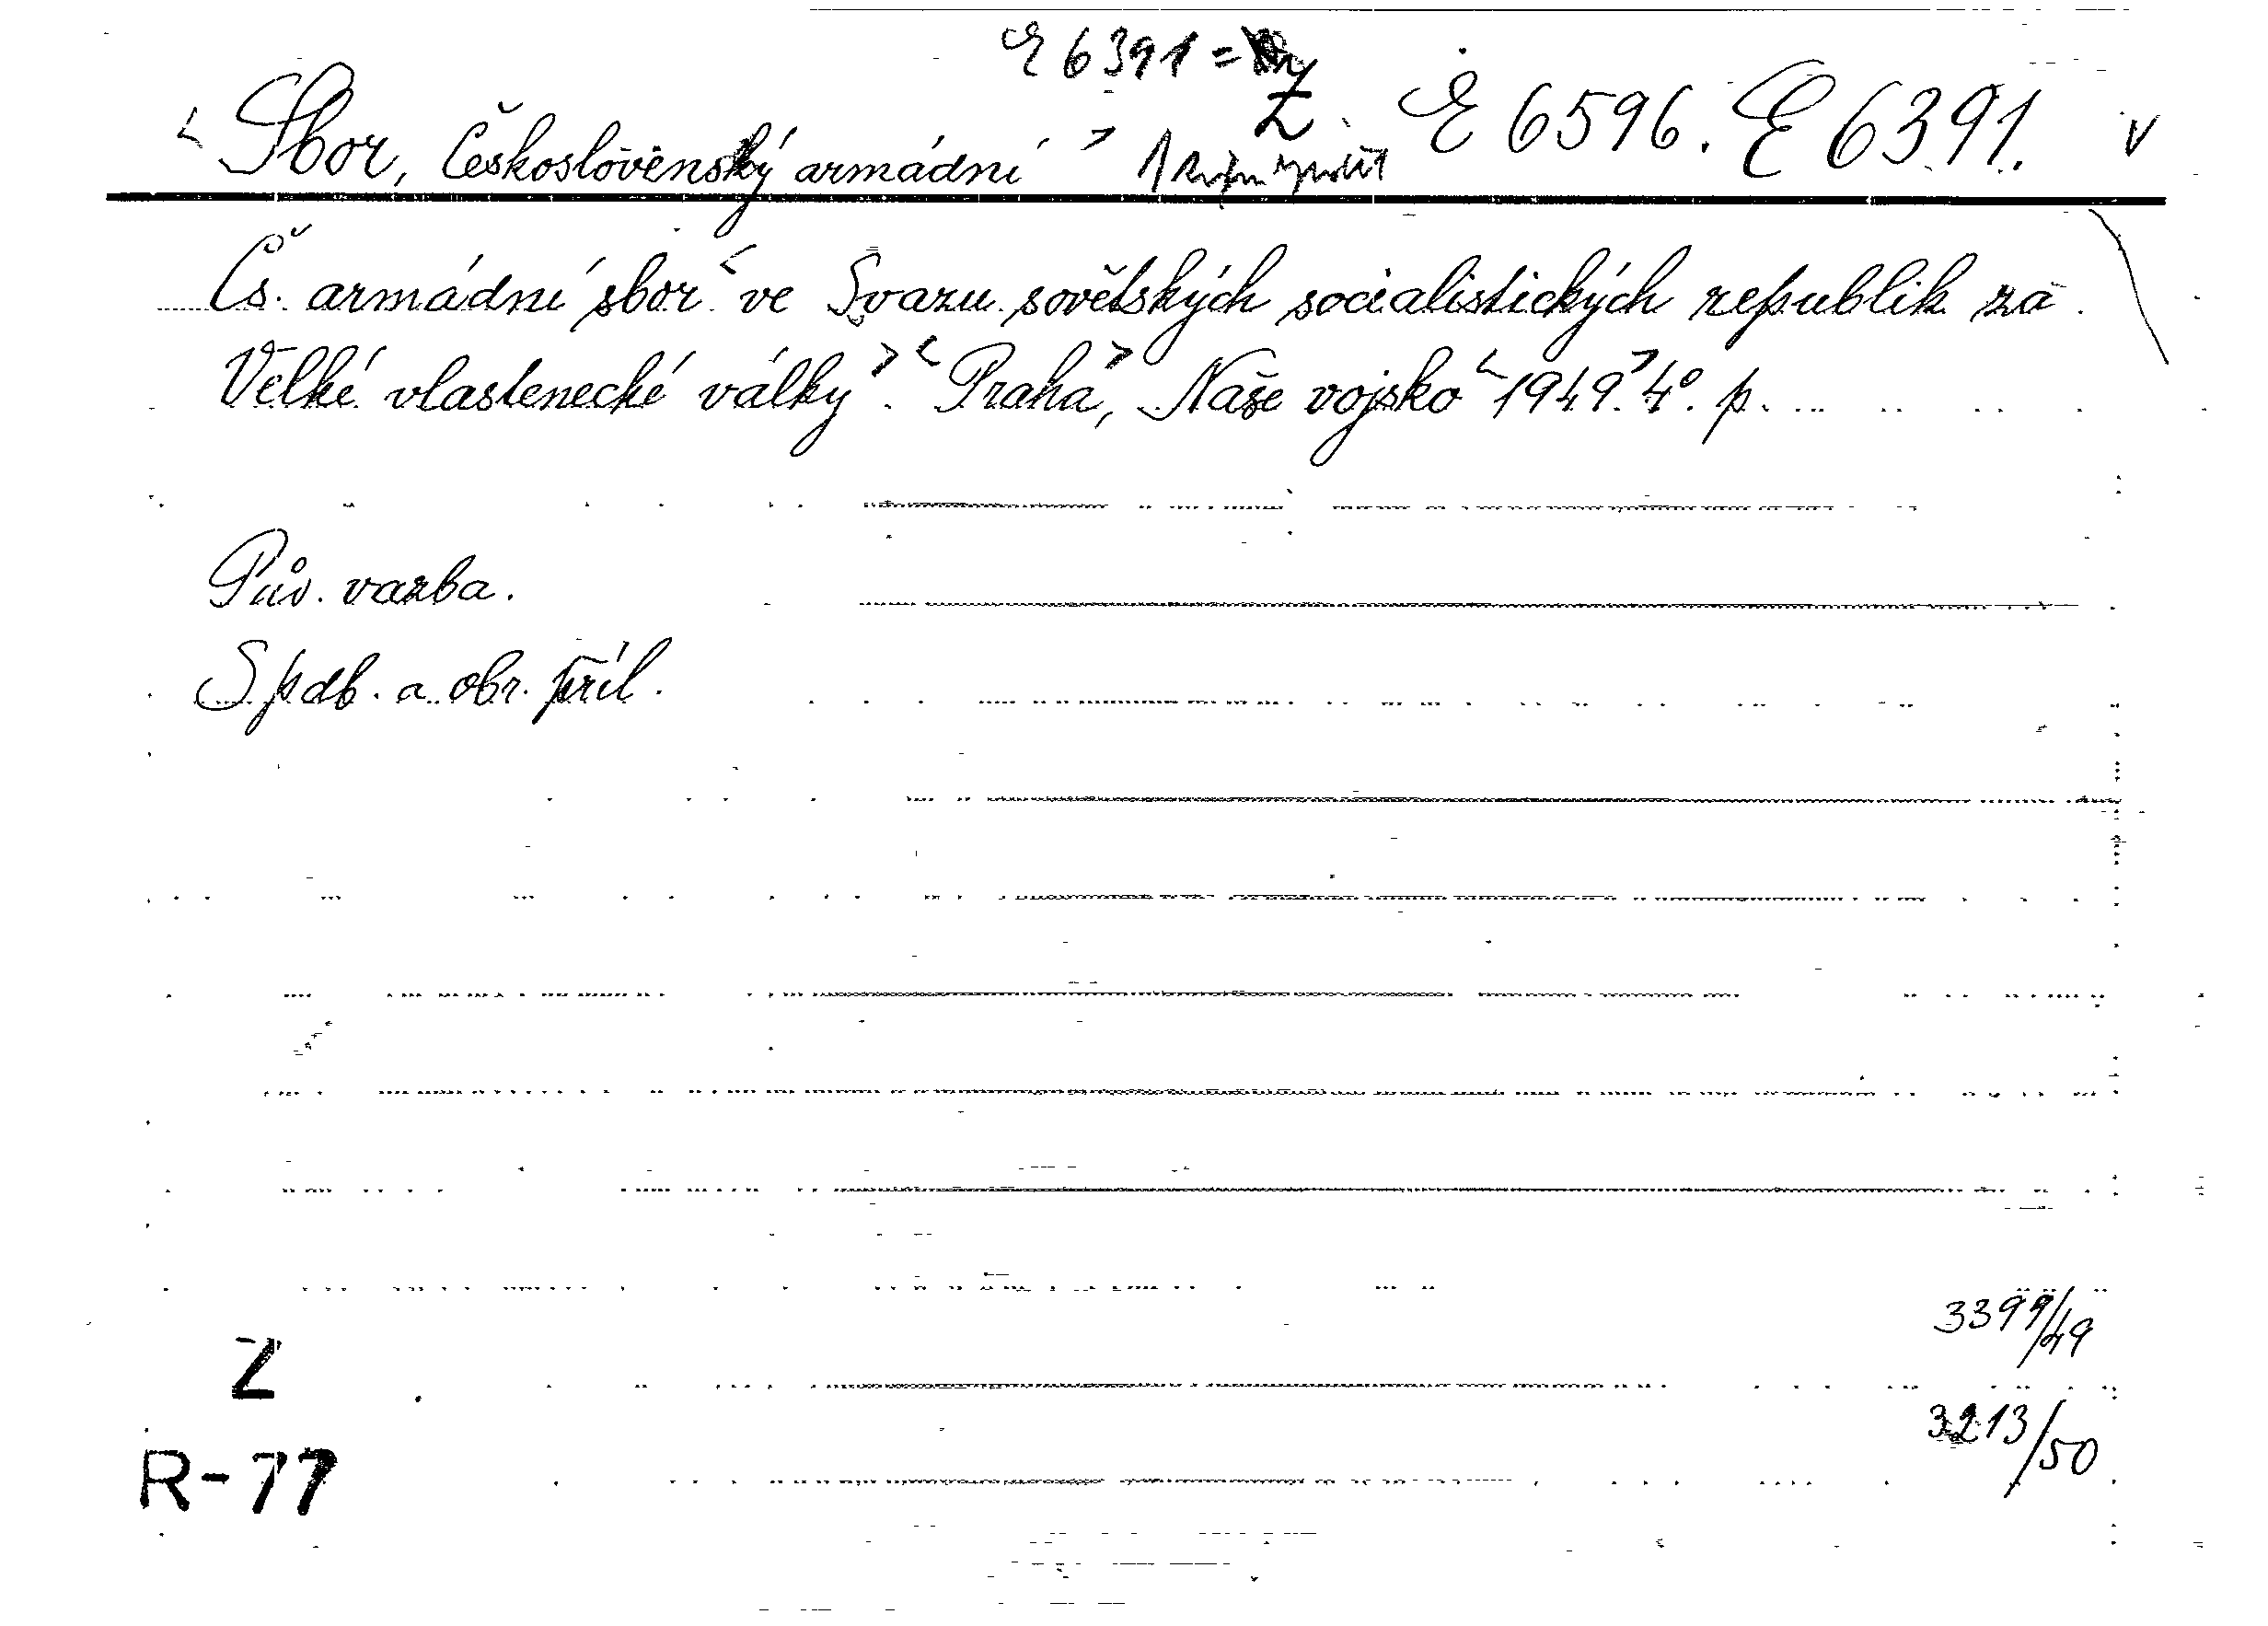 E 6391 =
Z.
Sbor, Československý armádní E 6596. E 6391. v
Čs. armádní sbor ve Svazu sovětských socialistických republik za
Velké vlastenecké války. Praha, Naše vojsko 1949. 4°. p.
Pův. vazba.
S pdb. a obr. příl.
3399/49
Z
3213/50
R-77